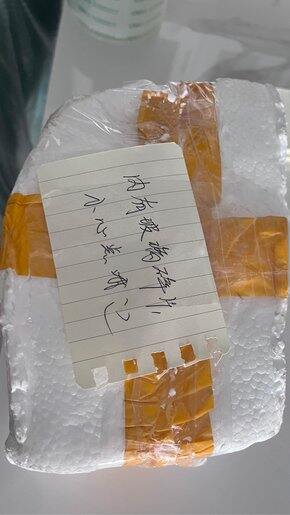 内有玻璃碎片,
小心点